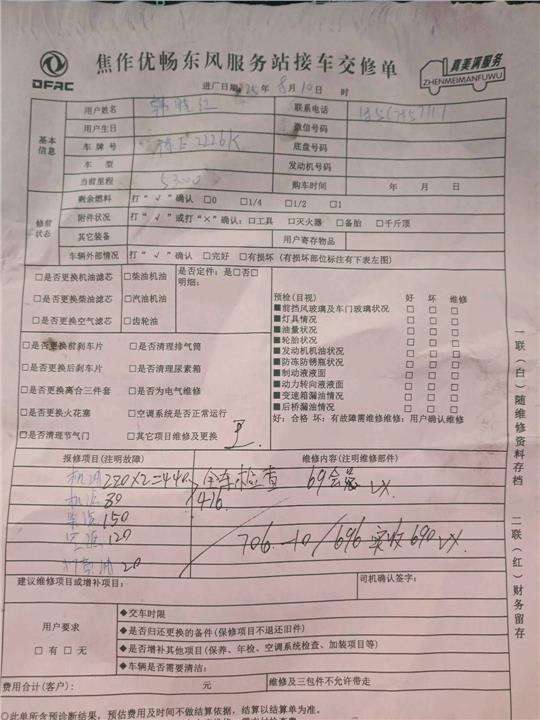 DFAC
焦作优畅东风服务站接车交修单
真美满服务
ZHENMEIMANFUWU
进厂日期 25年 8月10日 时
基本信息
用户姓名 联系电话
用户生日 微信号码
车牌号 2226K 底盘号码
车型 发动机号码
当前里程 53000 购车时间 年 月 日
修前状态
剩余燃料 打“√”确认 □0 □1/4 □1/2 □1
附件状况 打“√”或打“×”确认：□工具 □灭火器 □备胎 □千斤顶
其它装备 用户寄存物品
车辆外部情况 打“√”确认 □完好 □有损坏（有损坏部位标注有下表左图）
□是否更换机油滤芯 □柴油机油 是否定件：是□否□
明细：
□是否更换柴油滤芯 □汽油机油
□是否更换空气滤芯 □齿轮油
□是否更换前刹车片 □是否清理排气筒
□是否更换后刹车片 □是否清理尿素箱
□是否更换离合三件套 □是否为电气维修
□是否更换火花塞 □空调系统是否正常运行
□是否清理节气门 □其它项目维修及更换
预检（目视） 好 坏 维修
■前挡风玻璃及车门玻璃状况 □ □ □
■灯具情况 □ □ □
■油量状况 □ □ □
■轮胎状况 □ □ □
■发动机机油状况 □ □ □
■防冻防锈瓶状况 □ □ □
■制动液液面 □ □ □
■动力转向液液面 □ □ □
■变速箱漏油情况 □ □ □
■后桥漏油情况 □ □ □
好：合格 坏：有故障需维修维修：用户确认维修
报修项目（注明故障） 维修内容（注明维修部件）
机油 220×2=440 全车检查
机滤 80 416
柴滤 150
空滤 120 706 -10/696 实收690
20
建议维修项目或增补项目： 司机确认签字：
用户要求
□有 □无
◆交车时限
◆是否归还更换的备件（保修项目不退还旧件）
◆是否增补其他项目（保养、年检、空调系统检查、加装项目等）
◆车辆是否需要清洁：
费用合计（客户）： 元 维修及三包件不允许带走
◇此单所含预诊断结果，预估费用及时间不做结算依据，结算以结算单为准。
一联（白）随维修资料存档
二联（红）财务留存